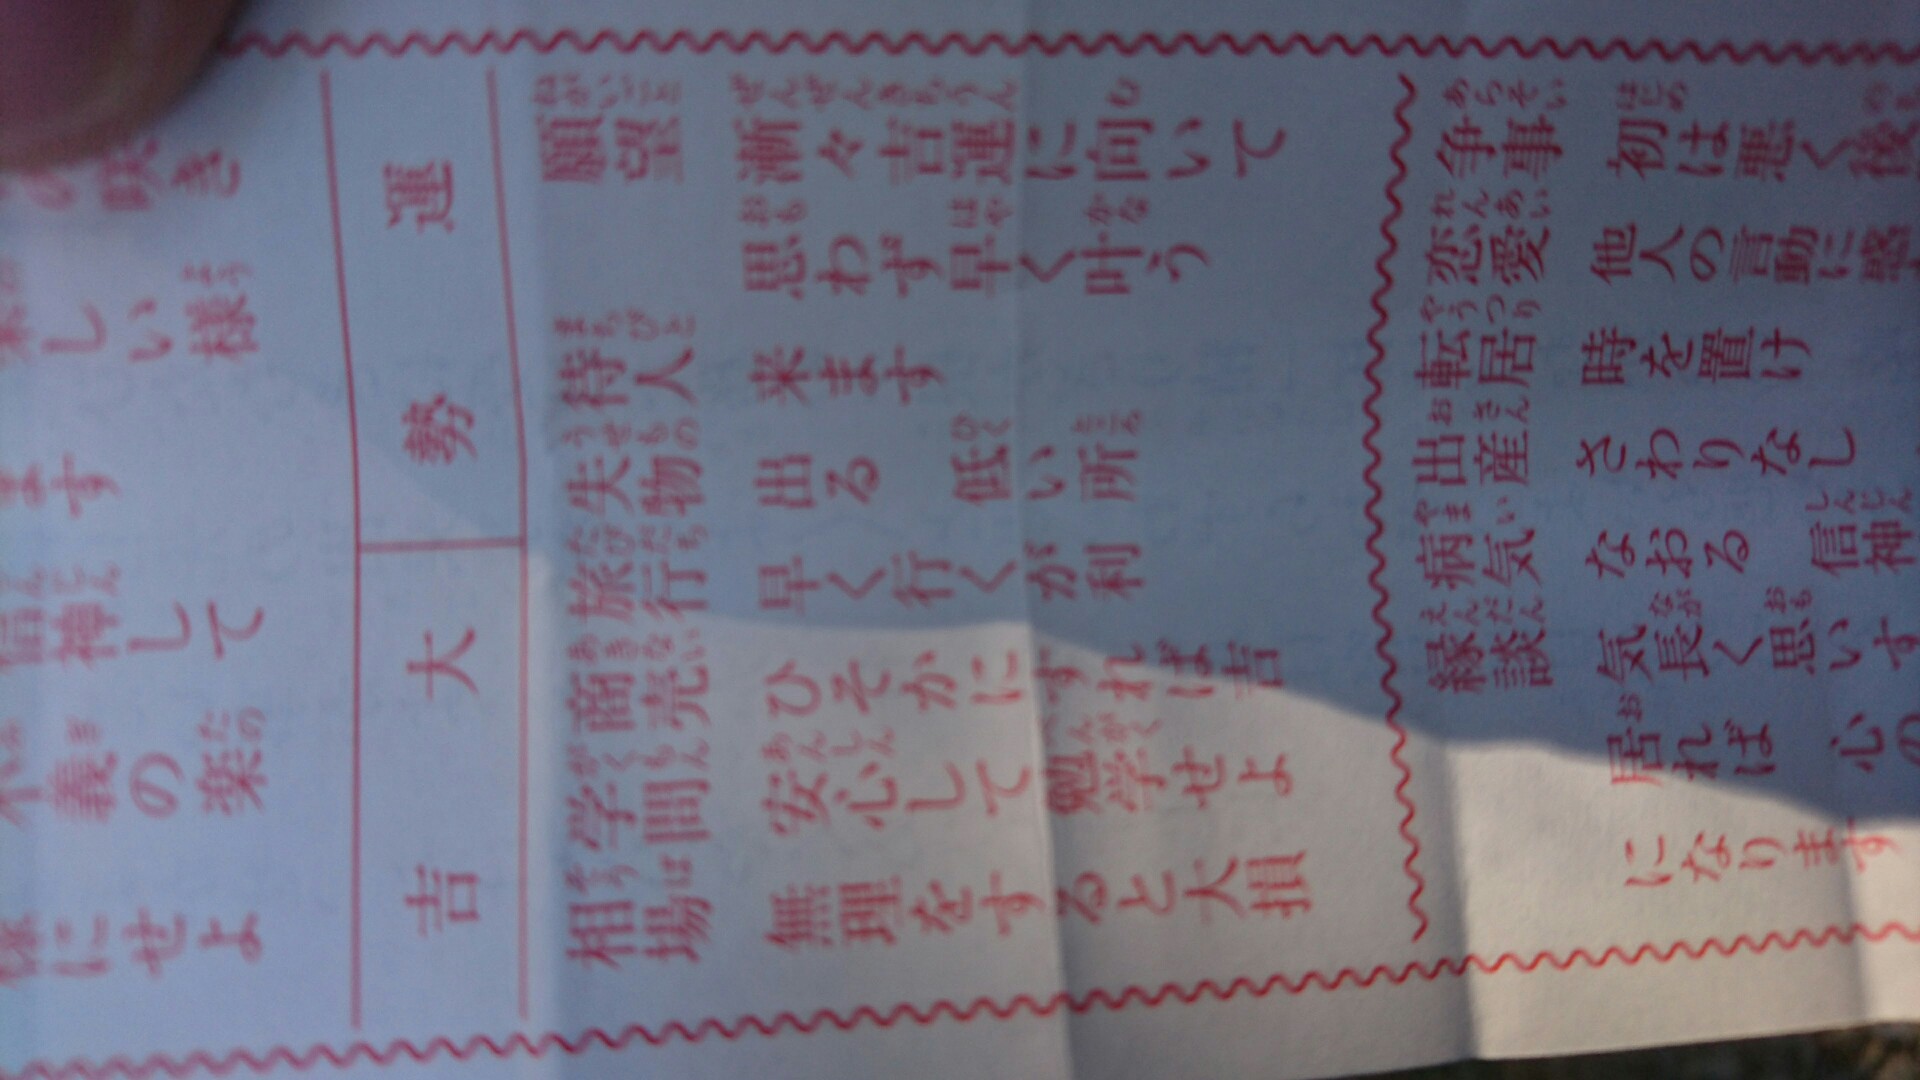 咲き
しい様
ます
信神して
義の楽
様にせよ
運勢 大吉
願望 漸々吉運に向いて
思わず早く叶う
待人 来ます
失物 出る 低い所
旅行 早く行くが利
商売 ひそかにすれば吉
学問 安心して勉学せよ
相場 無理をすると大損
争事 初は悪く後
恋愛 他人の言動に惑
転居 時を置け
出産 さわりなし
病気 なおる 信神
縁談 気長く思いす
居れば 心の
になります